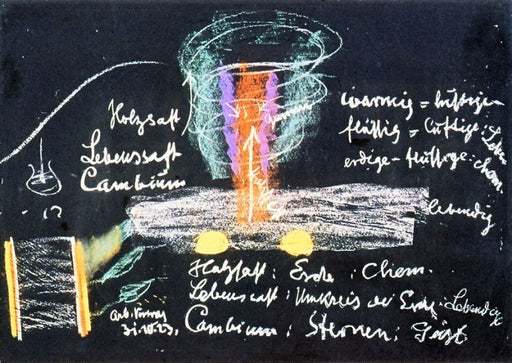 Holzsaft
Lebenssaft
Cambium
wärmig = luftigen
flüssig = luftige: Leben
erdige - flüssige: chem.
lebendig
Holzsaft: Erde: Chem.
Lebenssaft: Umkreis der Erde: Lebendig
Cambium: Sternen: Geist
Arb. Vortrag
31.10.23.